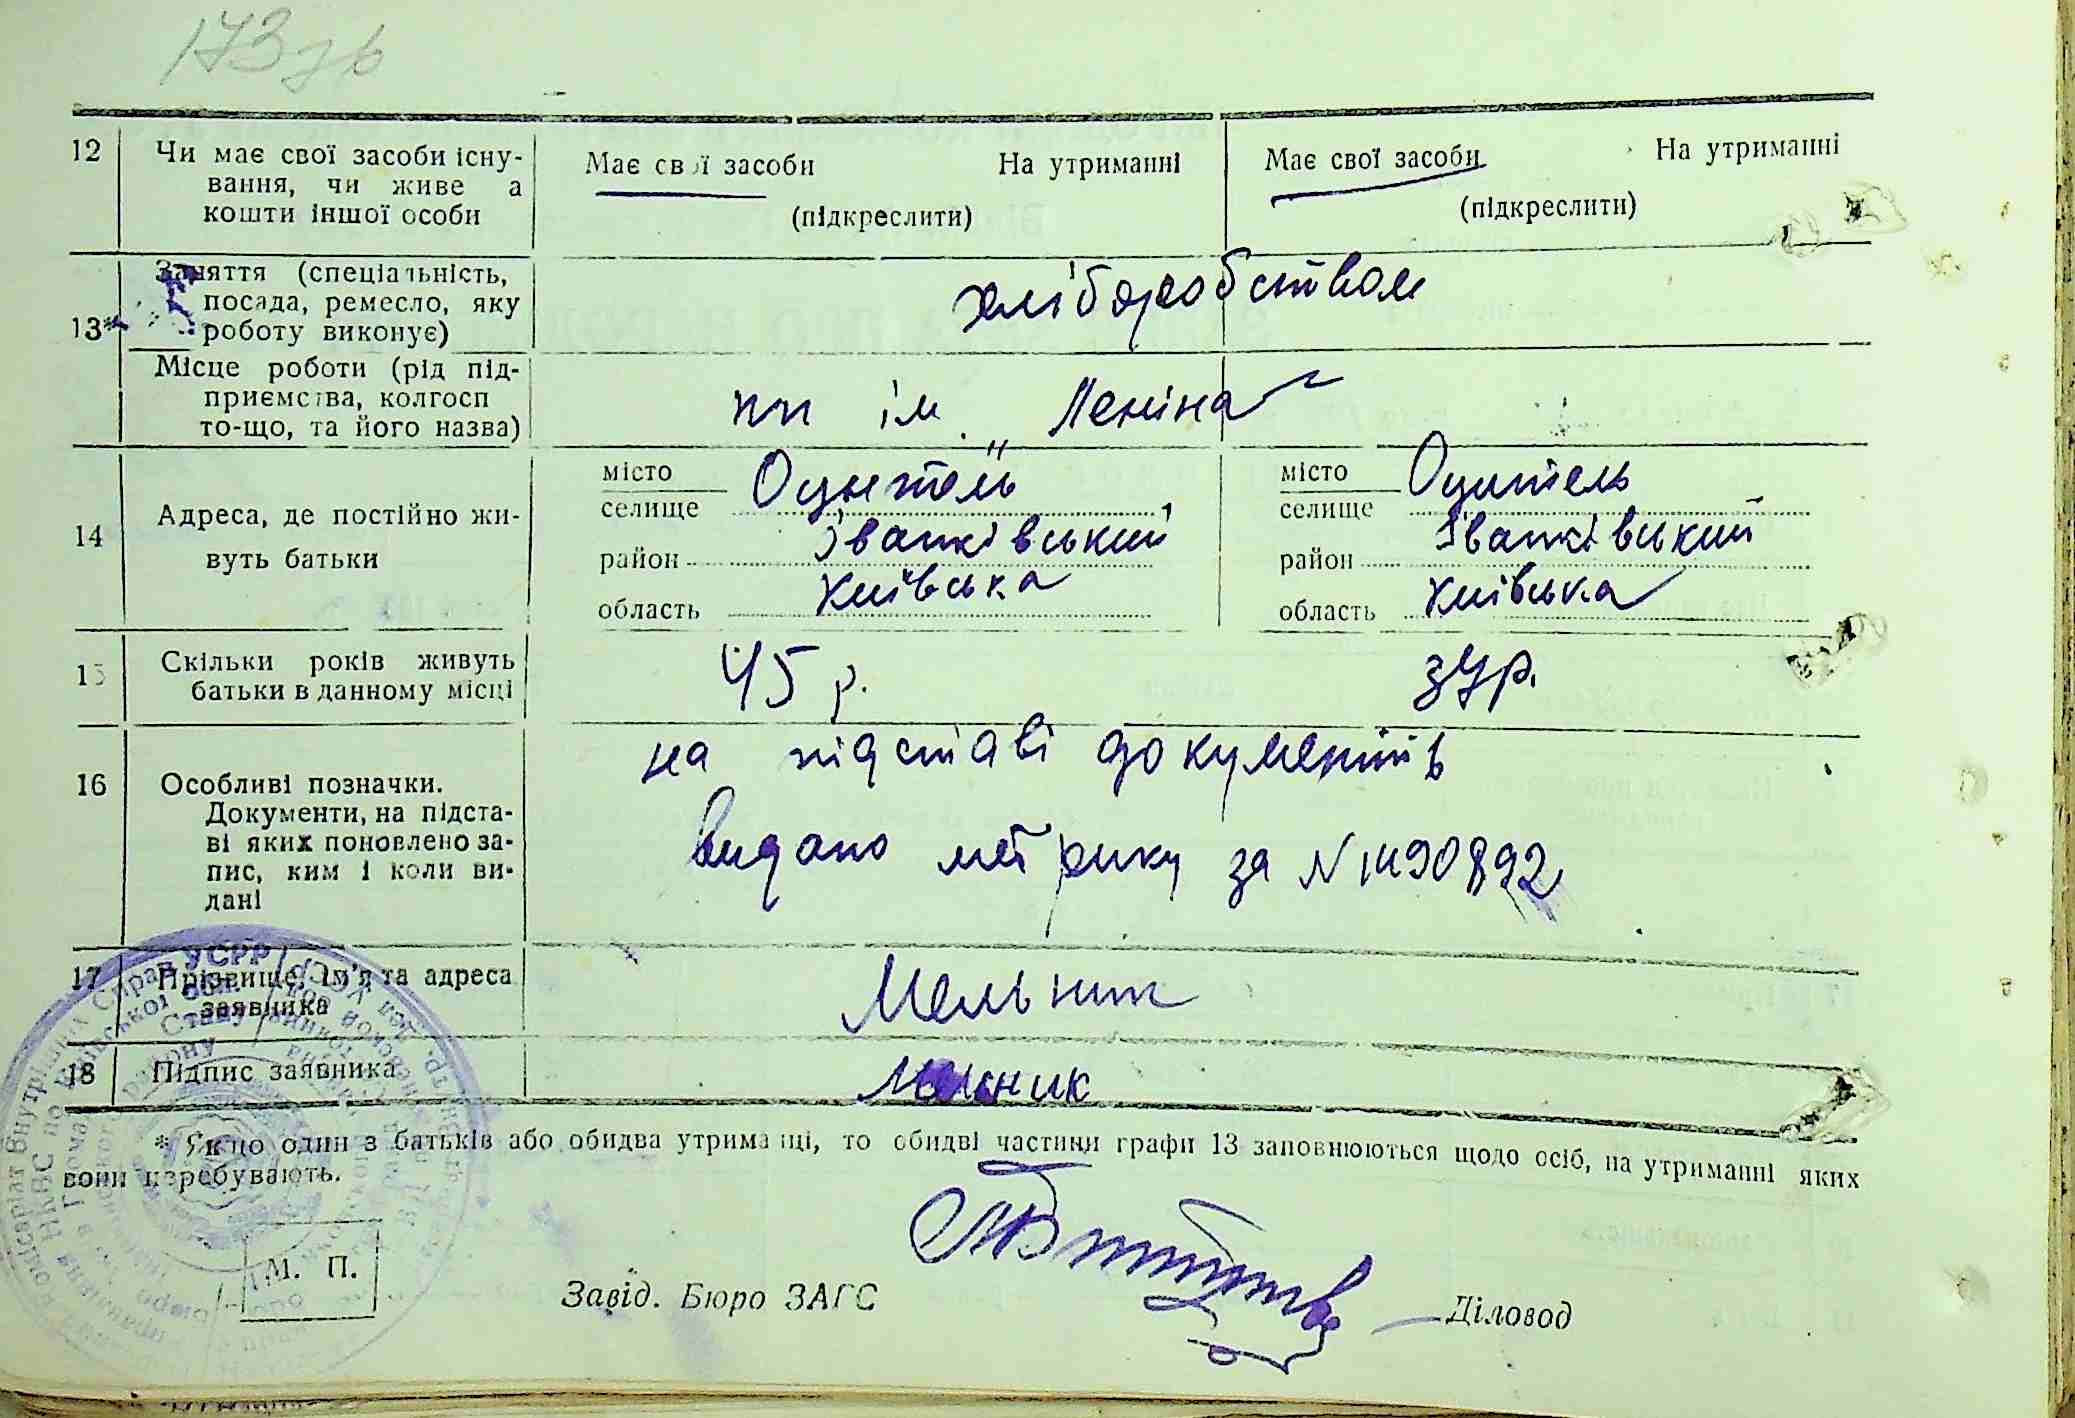 173зв
12 Чи має свої засоби існу-
вання, чи живе а
кошти іншої особи
Має свої засоби На утриманні
(підкреслити)
Має свої засоби На утриманні
(підкреслити)
13* Заняття (спеціальність,
посада, ремесло, яку
роботу виконує)
хліборобством
Місце роботи (рід під-
приємства, колгосп
то-що, та його назва)
ім Леніна
14 Адреса, де постійно жи-
вуть батьки
місто
селище Оцитель
район Іванківський
область Київська
місто
селище Оцитель
район Іванківський
область Київська
15 Скільки років живуть
батьки в данному місці
45 р.
16 Особливі позначки.
Документи, на підста-
ві яких поновлено за-
пис, ким і коли ви-
дані
на підставі документів
видано метрику за №
17 Прізвище, ім'я та адреса
заявника
Мельник
18 Підпис заявника
Мельник
* Якщо один з батьків або обидва утриманці, то обидві частини графи 13 заповнюються щодо осіб, на утриманні яких
вони перебувають.
М. П.
Завід. Бюро ЗАГС
Діловод
УСРР